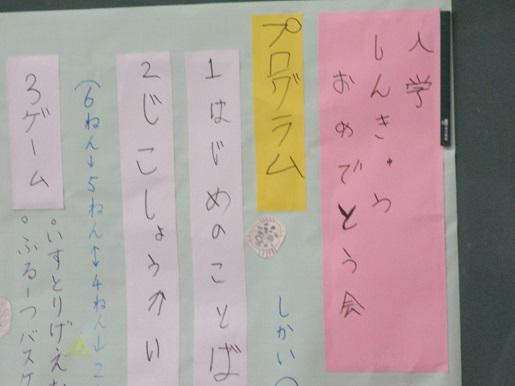 入学
しんきゅう
おめでとう会
プログラム
しかい
1 はじめのことば
2 じこしょうかい
(6ねん↓5ねん↑↓4ねん↓2
3 ゲーム
。いすとりげえむ
。ふるーつバスケ